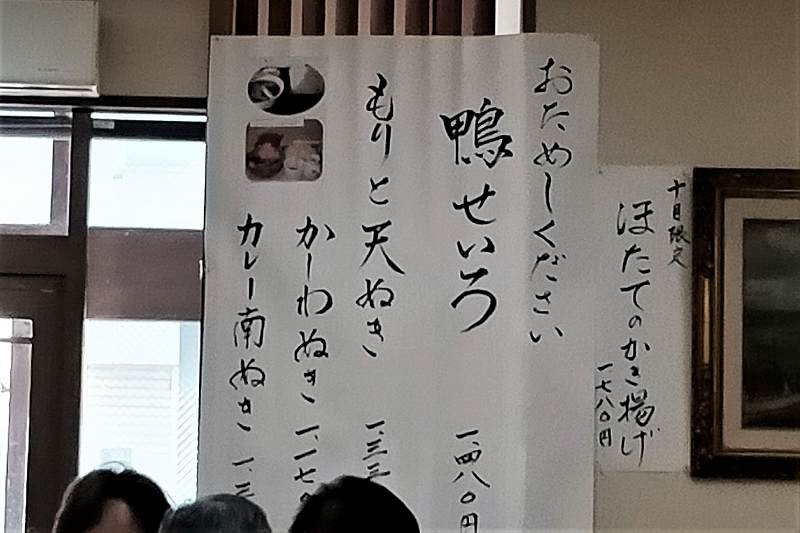 十月限定
ほたてのかき揚げ
一七八〇円
おためしください
鴨せいろ 一、四八〇円
もりと天ぬき 一、三三
かしわぬき 一、一七〇
カレー南ぬき 一、三